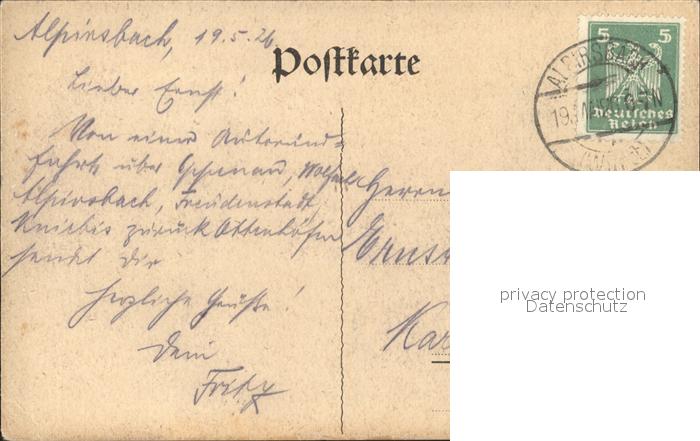 Alpirsbach, 19.5.26
Postkarte
5 5
Deutsches
Reich
ALPIRSBACH
Lieber Ernst!
Von einer Autorund-
fahrt über Oppenau, Wolfach
Alpirsbach, Freudenstadt,
Kniebis zurück Ottenhöfen
sendet Dir
herzliche Grüße!
Dein
Fritz
Herrn
Ernst
Kar
privacy protection
Datenschutz